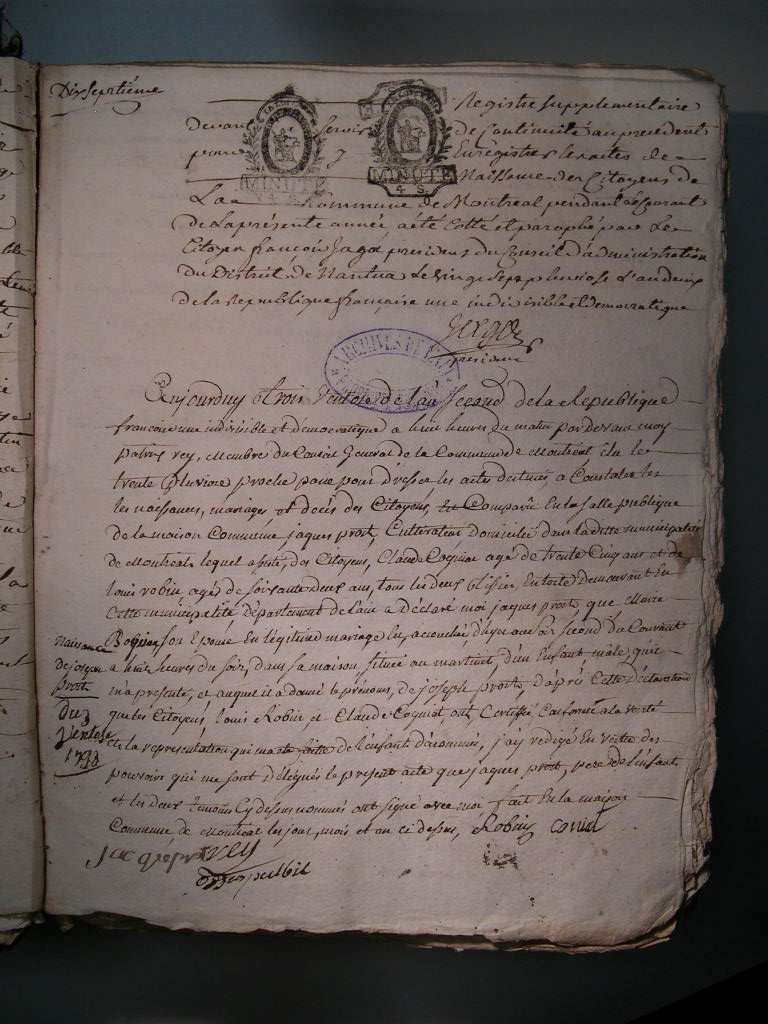 Dixseptiéme
Registre supplementaire
devant servir de continuité au precedent
pour y Enregistrer les actes de
MINUTE
4 S.
MINUTE
4 S.
Naissance des Citoyens de
La Commune de Montreal pendant le Courant
de la presente année a été Cotté et paraphé par Le
Citoyen françois Jagot president du Conseil d'administration
du District de Nantua le vingt sept pluviose l'an deux
de la Republique francaise une indivisible et Democratique
president
ARCHIVES DE L'AIN
Aujourduy trois Ventose de l'an Second de la Republique
francoise une indivisible et démocratique a huit heures du matin par devant moy
rey, Membre du Conseil General de la Commune de Montreal Elu le
trente pluviose proche passé pour dresser les actes destinés a Constater les
les naissances, mariages et décés des Citoyens, Comparu En la salle publique
de la maison Commune jaques prost, Cultivateur domicilié dans la ditte municipalité
de Montreal, lequel assisté, des Citoyens, Claude agé de trente Cinq ans et de
louis robin agé de soixante deux ans, tous les deux demeurant En
Cette municipalité, département de l'ain a déclaré moi jaques prost que Marie
son Epouse En légitime mariage Est accouchée, d'hyer au soir second du Courant
a huit heures du soir, dans sa maison, située au martinet, d'un Enfant mâle qu'il
ma présenté, et auquel il a donné le prénoms, de joseph prost, d'aprés Cette Déclaration
que les Citoyens louis Robin et Claude ont Certifié Conforme a la verité
et la représentation qui ma été faite de l'enfant dénommés, j'ay redigé En vertu des
pouvoirs qui me sont délégués le présent acte que jaques prost, pere de l'enfant
et les deux temoins Cy dessus nommés ont signé avec moi fait En la maison
Commune de Montreal les jour, mois et an ci dessus, Robin
rey
naissance
de joseph
prost
Du 3
Ventose